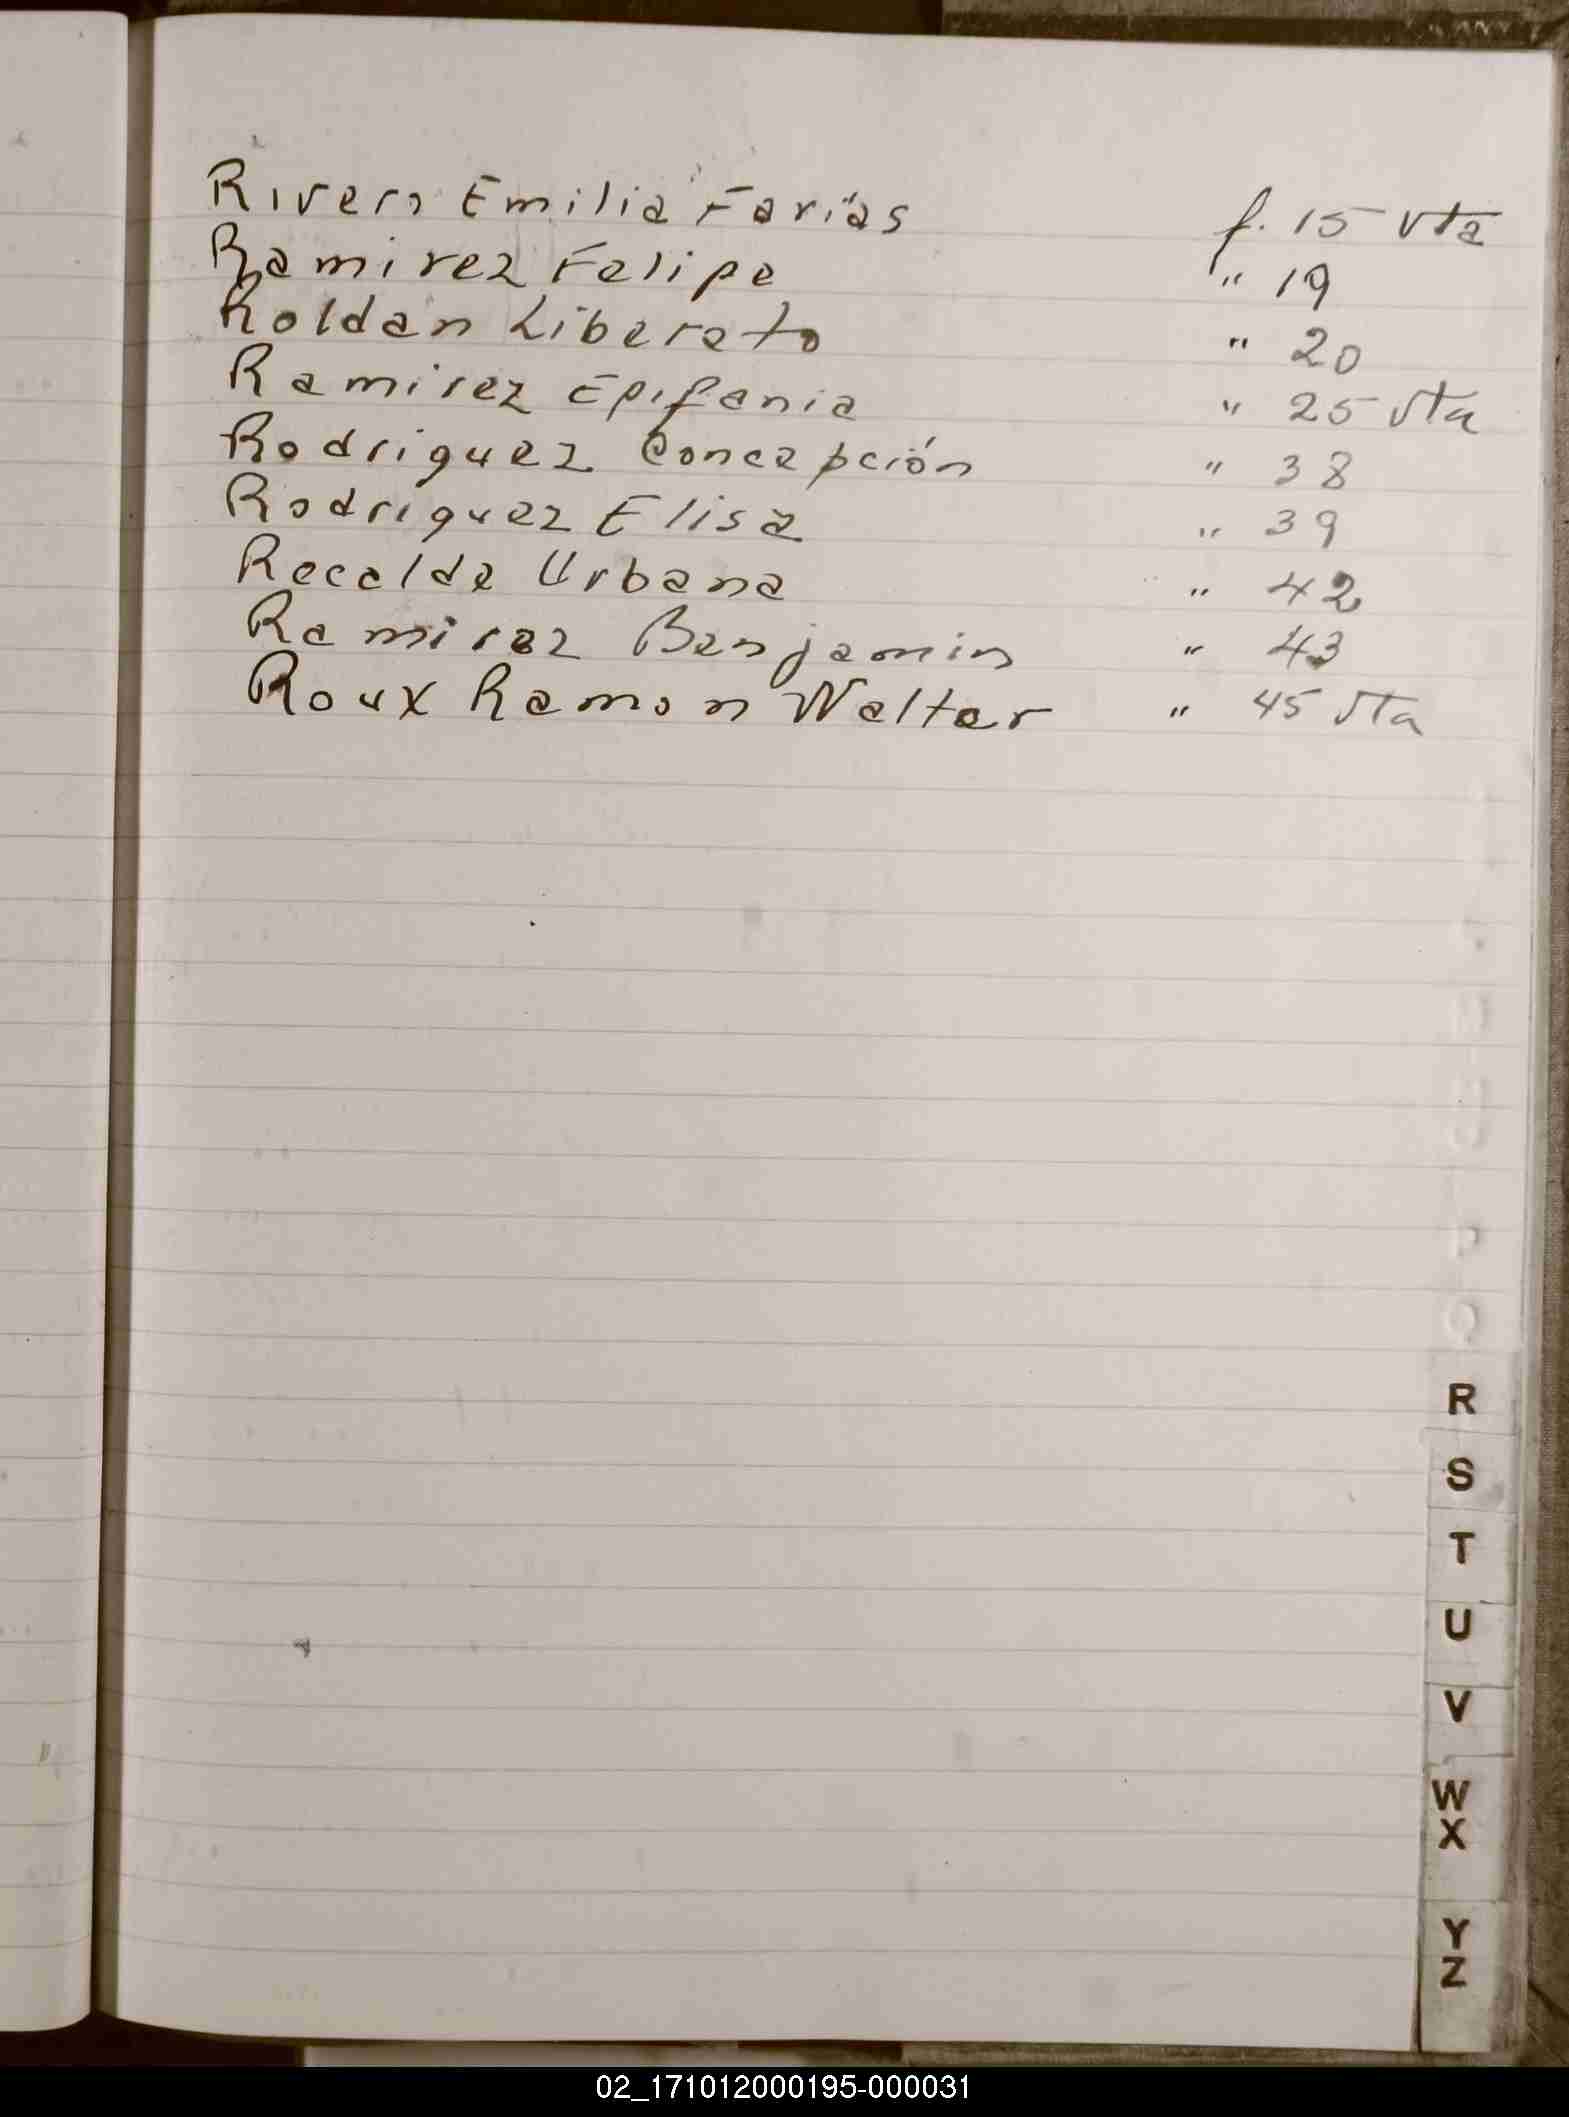 Rivero Emilia Farías f. 15 vta
Ramirez Felipe " 19
Roldan Liberato " 20
Ramirez Epifania " 25 vta
Rodriguez Concepción " 38
Rodriguez Elisa " 39
Recalde Urbana " 42
Ramirez Benjamin " 43
Roux Ramon Walter " 45 vta
R
S
T
U
V
W
X
Y
Z
02_171012000195-000031